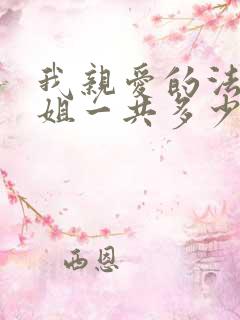 我親愛的法
姐一共多少
西恩